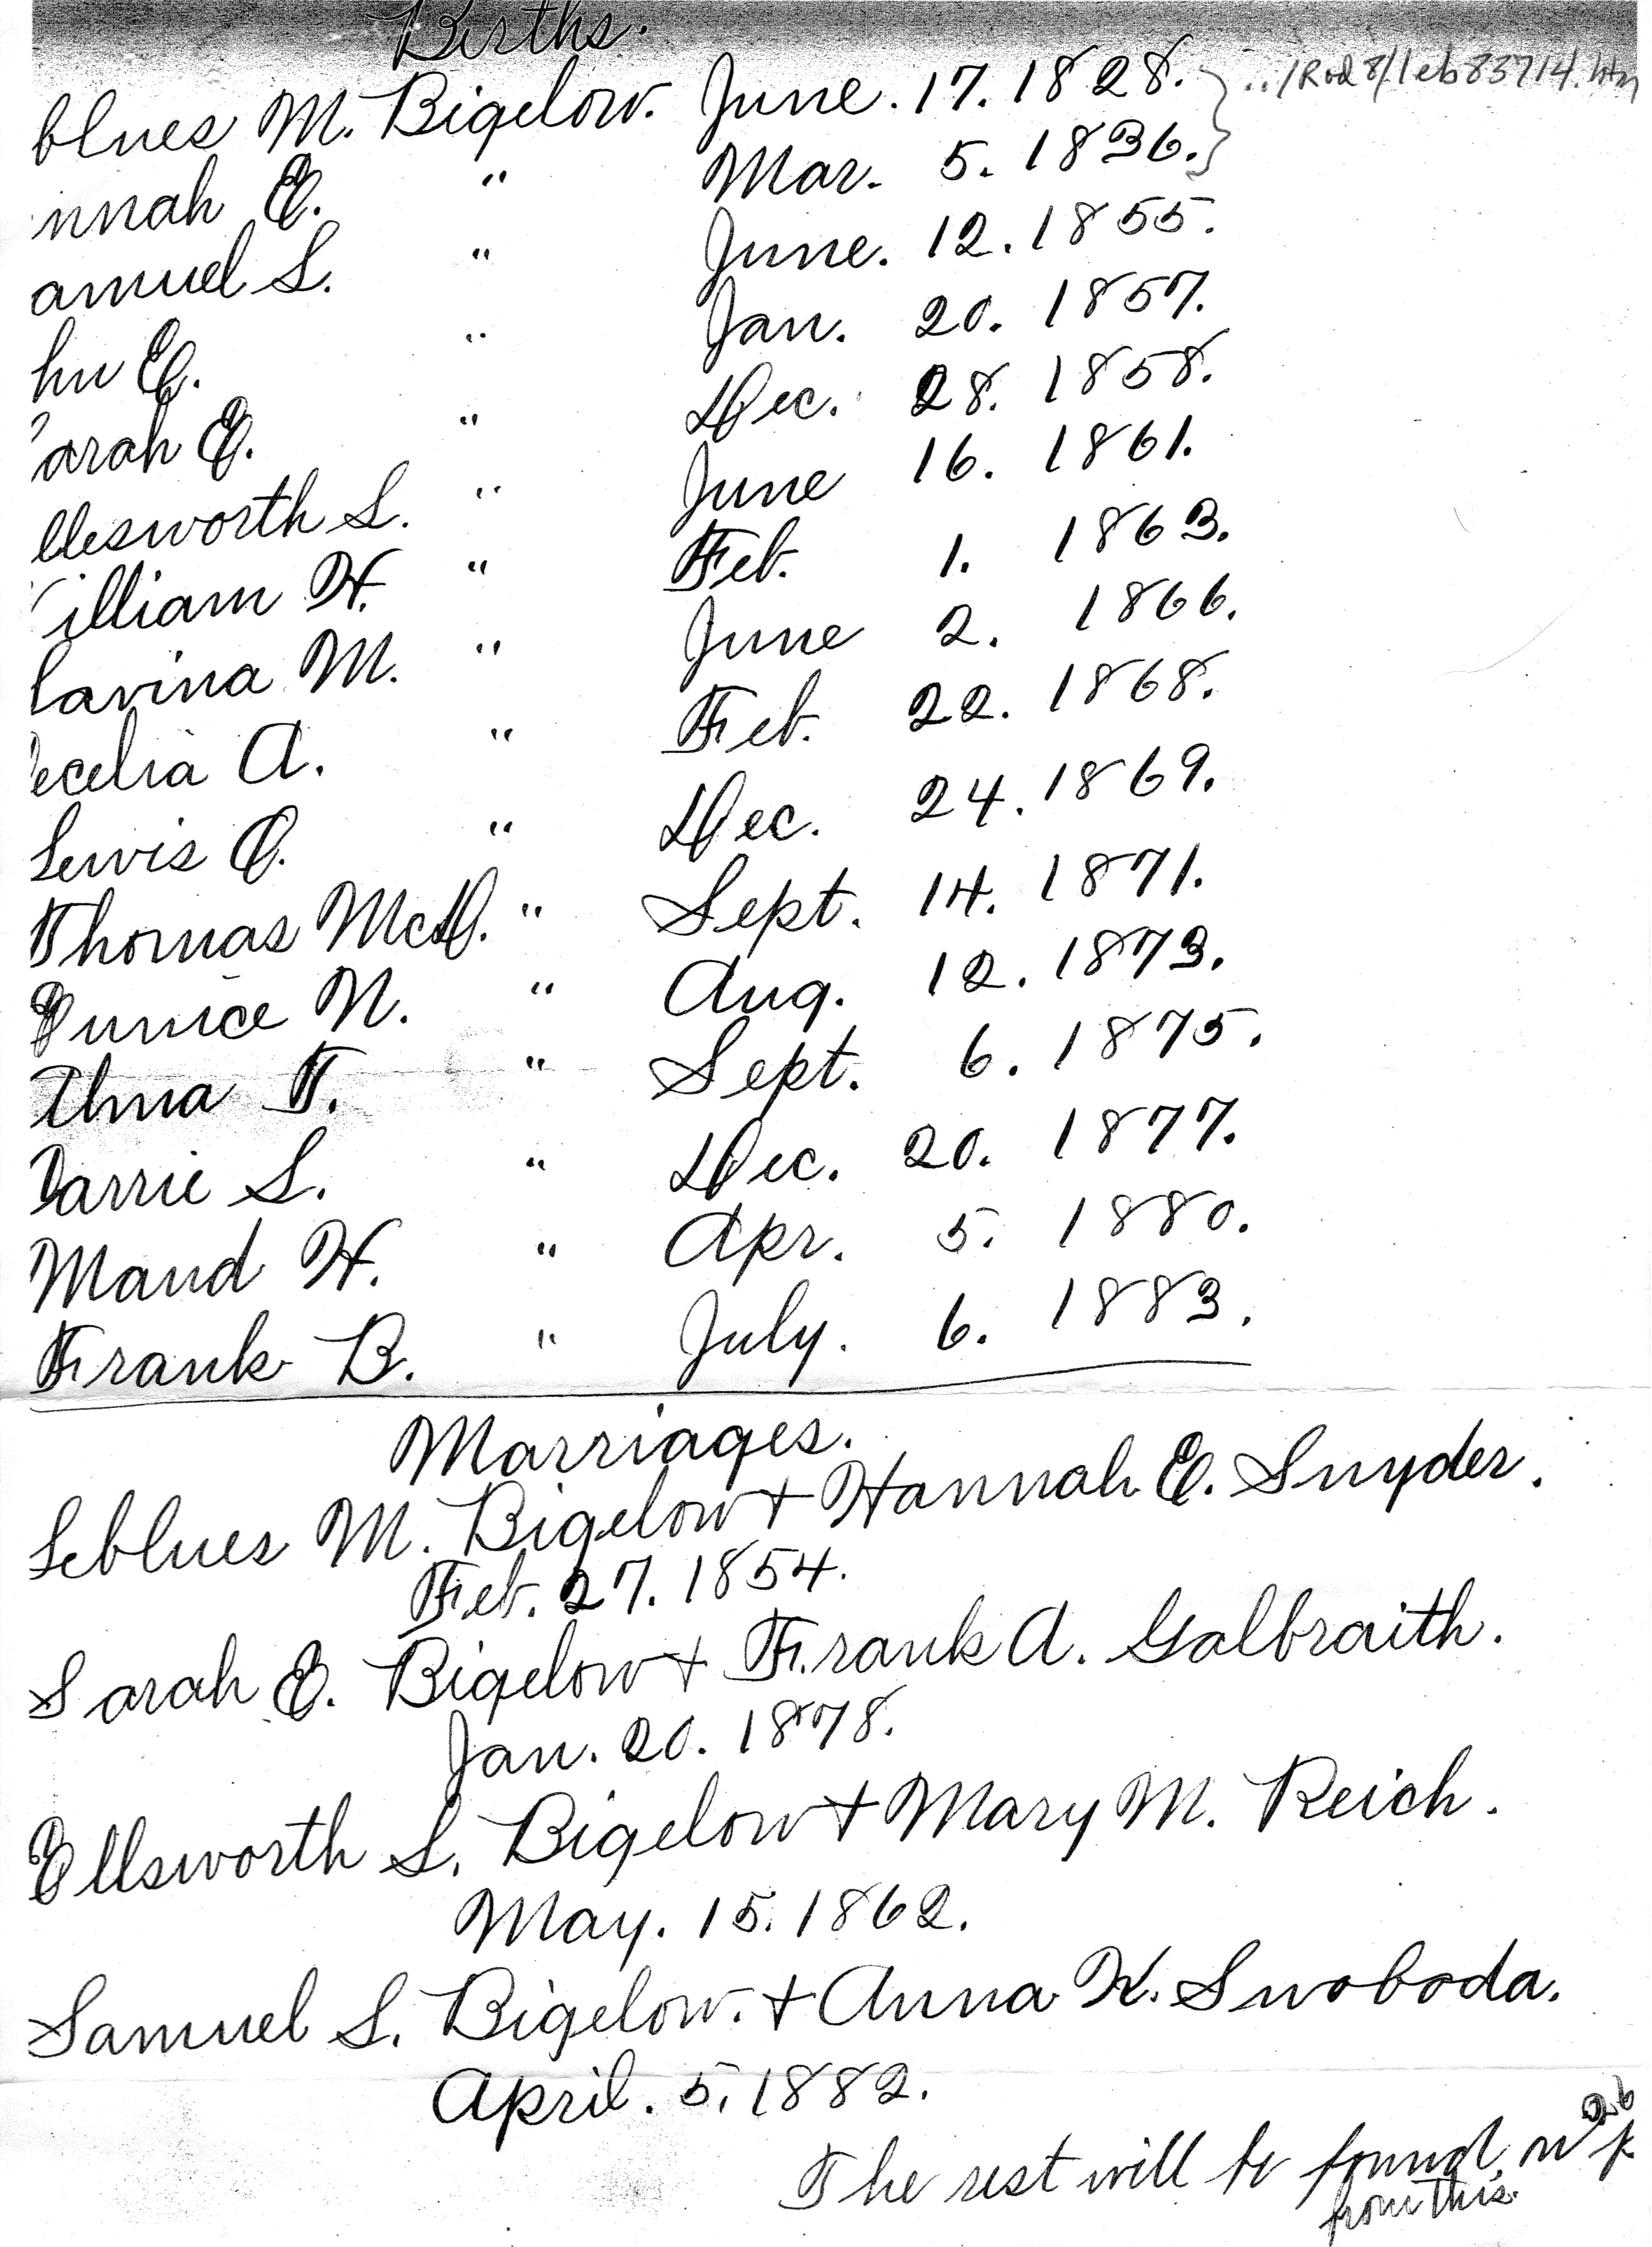 Births.
blues M. Bigelow. June. 17. 1828. } ../Rod8/leb83714.htm
nnah E. " Mar. 5. 1836.
amuel S. " June. 12. 1855.
hn E. " Jan. 20. 1857.
arah E. " Dec. 28. 1858.
llesworth L. " June 16. 1861.
illiam H. " Feb. 1. 1863.
lavina M. " June 2. 1866.
ecelia A. " Feb. 22. 1868.
Lewis O. " Dec. 24. 1869.
Thomas McD. " Sept. 14. 1871.
Eunice N. " Aug. 12. 1873.
Alma T. " Sept. 6. 1875.
Carrie S. " Dec. 20. 1877.
Maud H. " Apr. 5. 1880.
Frank B. " July. 6. 1883.
Marriages.
Leblues M. Bigelow + Hannah E. Snyder.
Feb. 27. 1854.
Sarah E. Bigelow + Frank A. Galbraith.
Jan. 20. 1878.
Ellsworth L. Bigelow + Mary M. Reich.
May. 15. 1862.
Samuel S. Bigelow. + Anna K. Swoboda.
April. 5. 1882.
The rest will be found
from this.